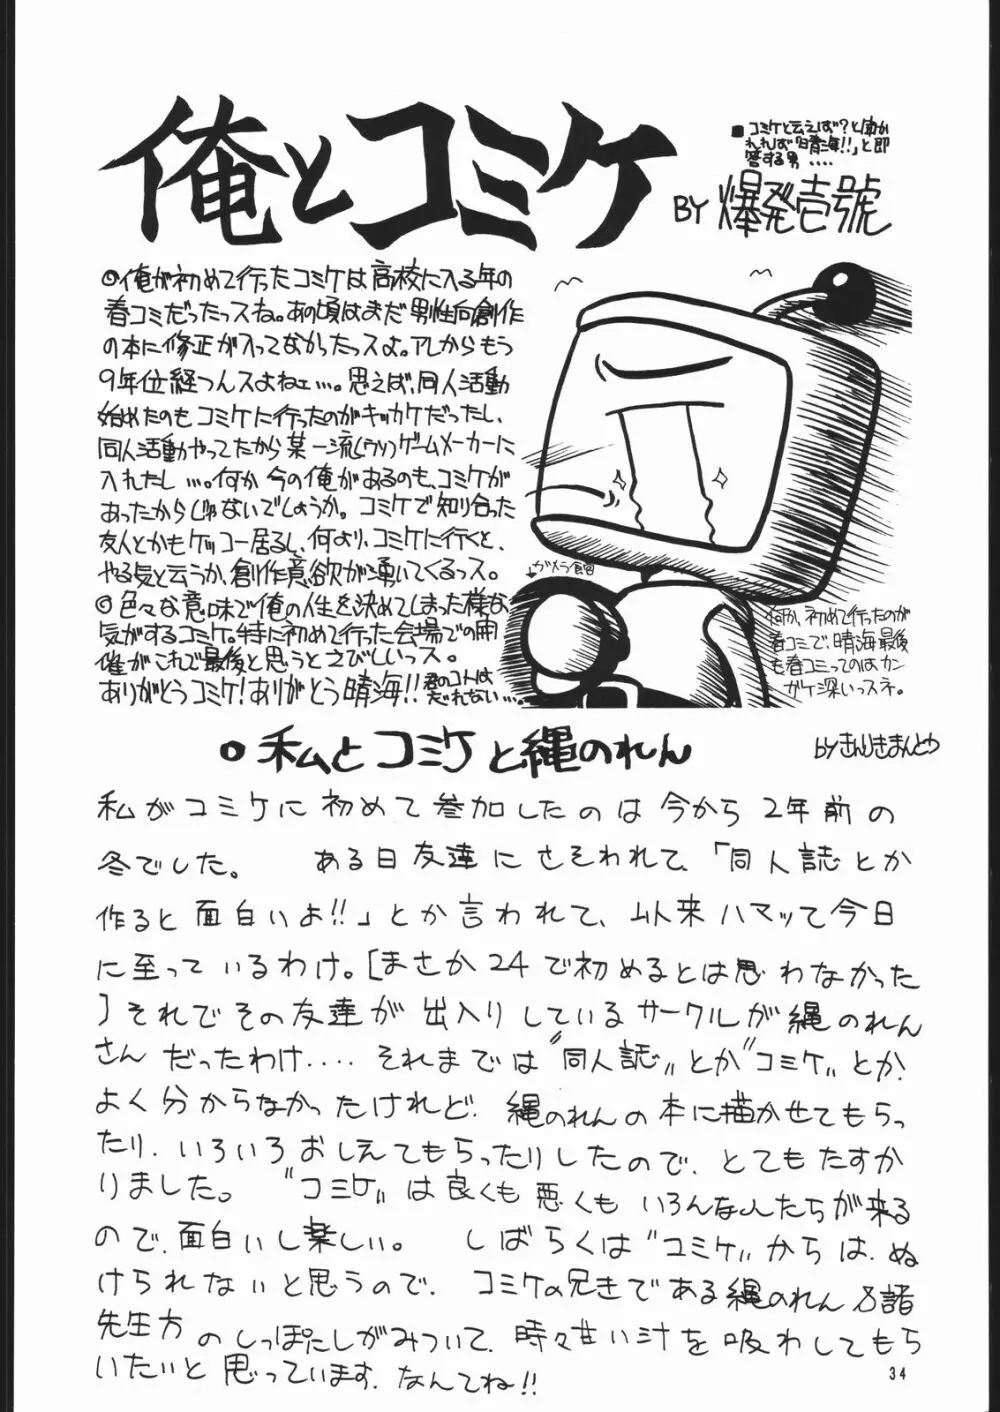 俺とコミケ
■コミケと云えば?と聞か
れれば「晴海!!」と即
答する男....
BY 爆発壱號
◎俺が初めて行ったコミケは高校に入る年の
春コミだったっスね。あの頃はまだ男性向創作
の本に修正が入ってなかったっスよ。アレからもう
9年位経つんスよねェ…。思えば、同人活動
始めたのもコミケに行ったのがキッカケだったし、
同人活動やってたから某一流(ウソ)ゲームメーカーに
入れたし…。何か今の俺があるのも、コミケが
あったからじゃないでしょうか。コミケで知り合った
友人とかもケッコー居るし、何より、コミケに行くと、
やる気と云うか、創作意欲が湧いてくるっス。
◎色々な意味で俺の人生を決めてしまった様な
気がするコミケ。特に初めて行った会場での開
催がこれで最後と思うとさびしいっス。
ありがとうコミケ!ありがとう晴海!!君のコトは
忘れない….
↓ガメラ館
何か、初めて行ったのが
春コミで、晴海最後
も春コミってのはカン
ガケ深いっスネ。
○私とコミケと縄のれん
byきんじきまんとひ
私がコミケに初めて参加したのは今から2年前の
冬でした。 ある日友達にさそわれて、「同人誌とか
作ると面白いよ!!」とか言われて、以来ハマって今日
に至っているわけ。[まさか24で初めるとは思わなかった
]それでその友達が出入りしているサークルが縄のれん
さんだったわけ.... それまでは"同人誌"とか"コミケ"とか、
よく分からなかったけれど、縄のれんの本に描かせてもらっ
たり、いろいろおしえてもらったりしたので、とてもたすか
りました。 "コミケ"は良くも悪くもいろんな人たちが来る
ので、面白いし楽しい。 しばらくは"コミケ"からは、ぬ
けられないと思うので、コミケの兄きである縄のれん&諸
先生方のしっぽにしがみついて、時々甘い汁を吸わしてもら
いたいと思っています、なんてね!!
34